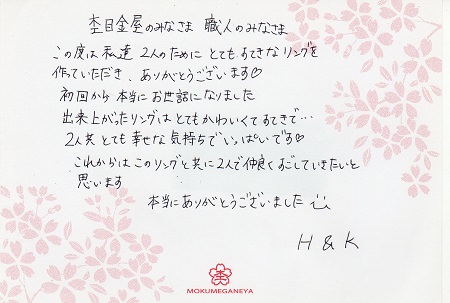 杢目金屋のみなさま 職人のみなさま
この度は私達 2人のために とても すてきなリングを
作っていただき、ありがとうございます♡
初回から 本当に お世話になりました
出来上がったリングは とても かわいくて すてきで…
2人共 とても 幸せな 気持ちで いっぱいです♡
これからは このリングと共に 2人で仲良く すごしていきたいと
思います
本当にありがとうございました
H & K
MOKUMEGANEYA